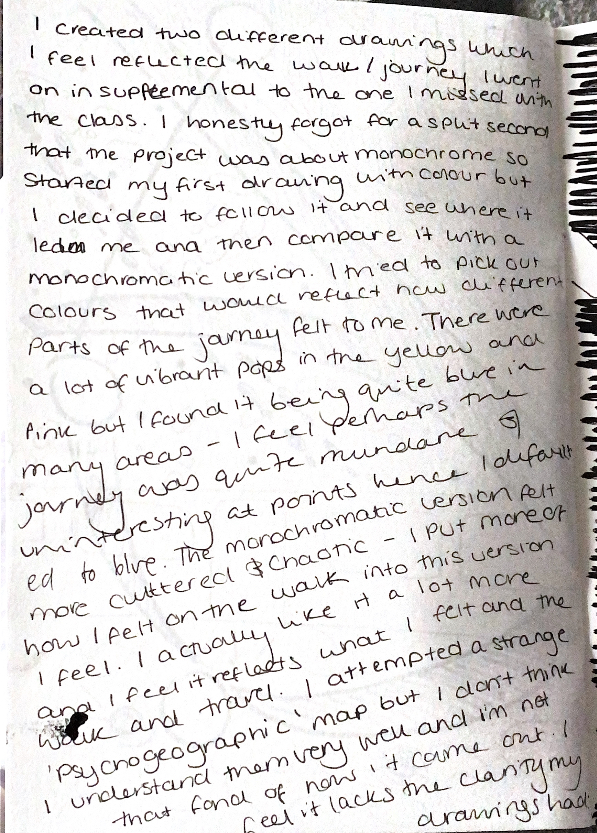 I created two different drawings which
I feel reflected the walk/journey I went
on in supplemental to the one I missed with
the class. I honestly forgot for a split second
that the project was about monochrome so
started my first drawing with colour but
I decided to follow it and see where it
led me and then compare it with a
monochromatic version. I tried to pick out
colours that would reflect how different
parts of the journey felt to me. There were
a lot of vibrant pops in the yellow and
pink but I found it being quite blue in
many areas - I feel perhaps the
journey was quite mundane &
uninteresting at points hence I default
ed to blue. The monochromatic version felt
more cluttered & chaotic - I put more of
how I felt on the walk into this version
I feel. I actually like it a lot more
and I feel it reflects what I felt and the
walk and travel. I attempted a strange
'psychogeographic' map but I don't think
I understand them very well and i'm not
that fond of how it came out. I
feel it lacks the clarity my
drawings had